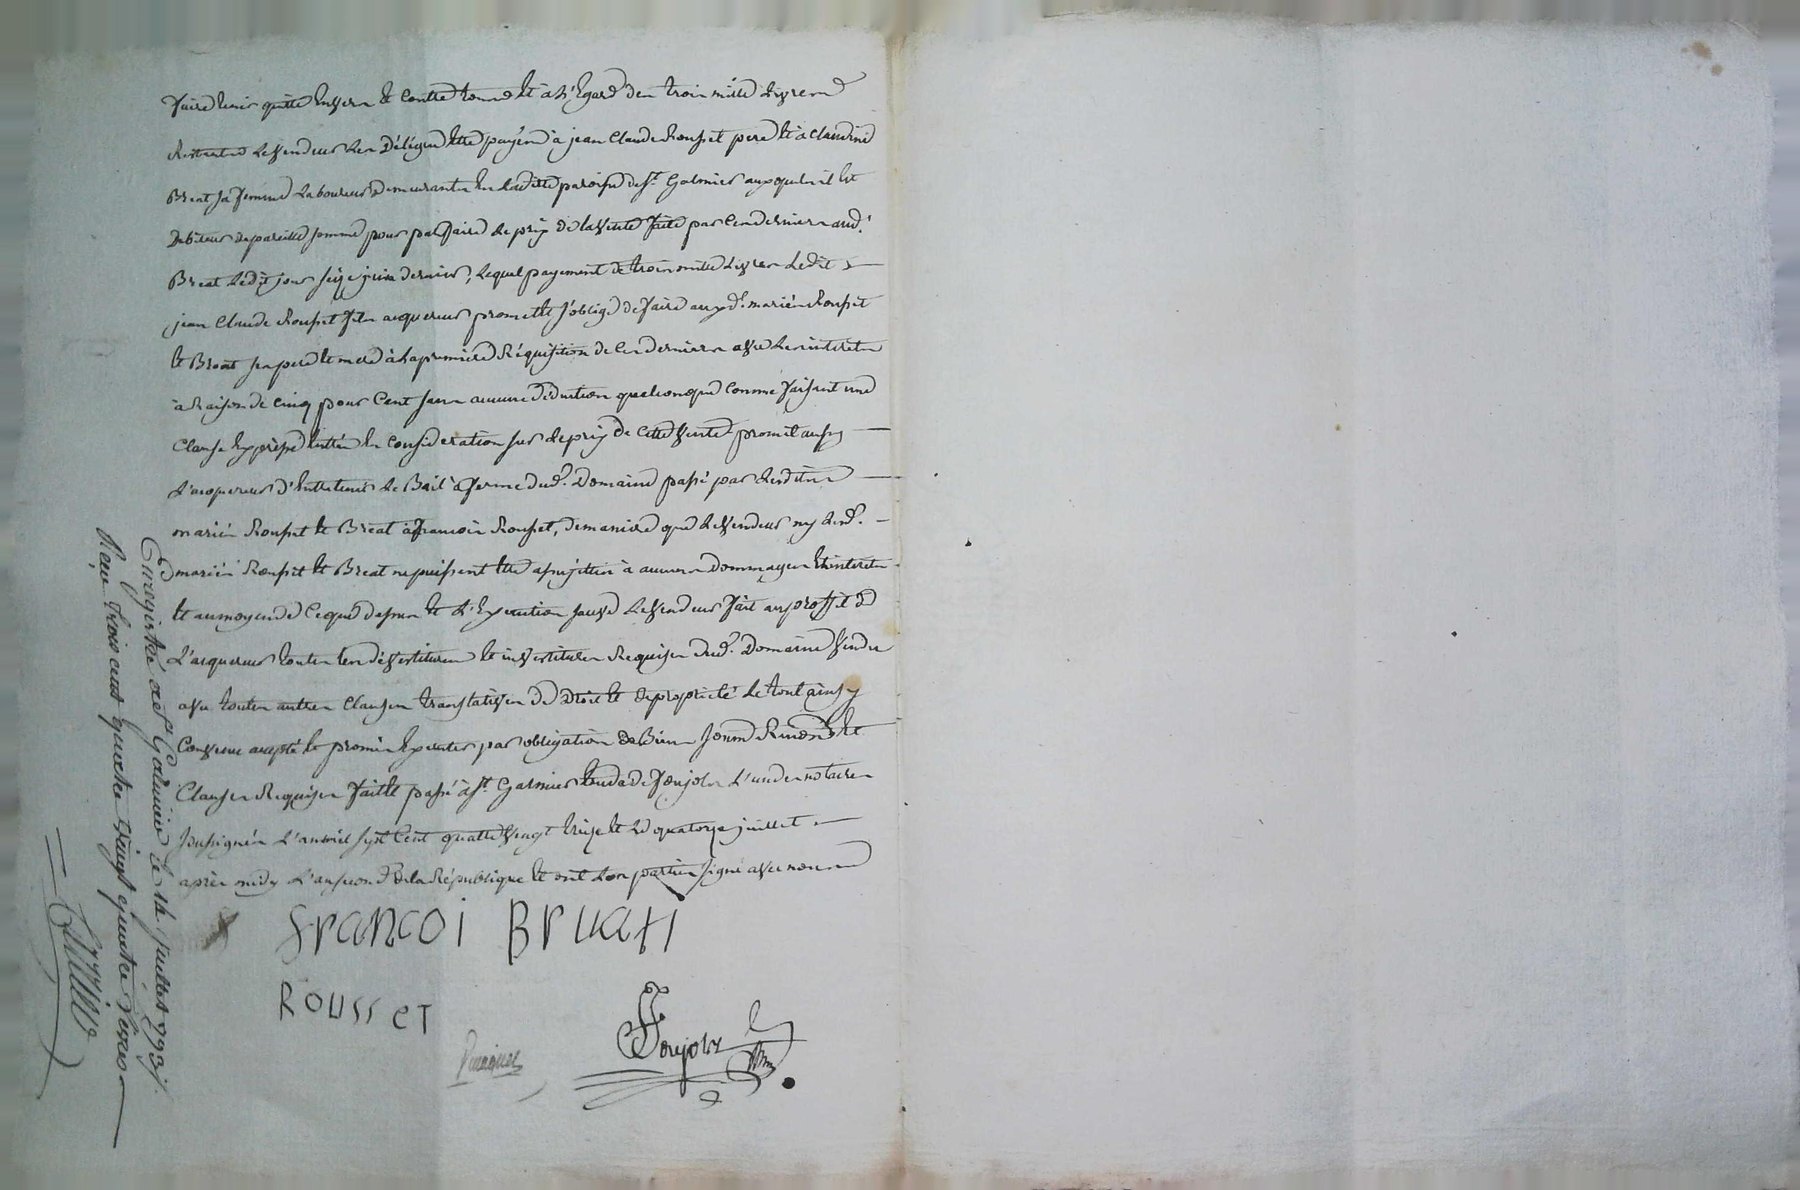 faire tenir quitte Envers et Contre tous et à L'Egard des trois mille Livres
Restantes Le Vendeur Les Délégue Etre payées à jean Claude Rousset pere Et à Claudine
Breat sa femme Laboureurs demeurants En Ladite paroisse de St. Galmier auxquels il Est
Debiteur de pareille somme pour parfaire Le prix de la Vente faite par Ces derniers aud.
Breat Ledit jour seize juin dernier, Lequel payement de trois mille Livres Ledit
jean Claude Rousset fils acquereur promet Et s'oblige de faire auxd. mariés Rousset
Et Breat ses pere Et mere à La premiere Réquisition de Ces derniers avec Les interets
à Raison de Cinq pour Cent sans aucune déduction quelconque Comme faisant une
Clause Expresse Entrée En Consideration sur Le prix de Cette Vente promet aussy
L'acquereur d'Entretenir Le Bail à ferme dud. Domaine passé par Lesdits
mariés Rousset Et Breat à francois Rousset, de maniere que Le Vendeur ny Lesd.
mariés Rousset Et Breat ne puissent Etre assujettis à aucuns dommages Et interets
Et au moyen de Ce que dessus Et L'Execution sauve Le Vendeur fait au proffit de
L'acquereur toutes Les dévestitures Et investitures Requises dud. Domaine Vendu
avec toutes autres Clauses translatives de Droit Et de propriété Le tout ainsy
Convenu accepté Et promis Executer par obligation de Biens soumis Renoncé Et
Clauses Requises fait Et passé à St. Galmier Etude de foujols L'un des notaires
soussignés L'an mil sept Cent quatre Vingt treize Et Le quatorze juillet
après midy L'an second de la République Et ont Les parties signé avec nous
francoi BrUaH
ROUSSeT
foujols
Enregistré à St Galmier le 14 juillet 1793
Reçu trois cent quatre vingt quatre livres